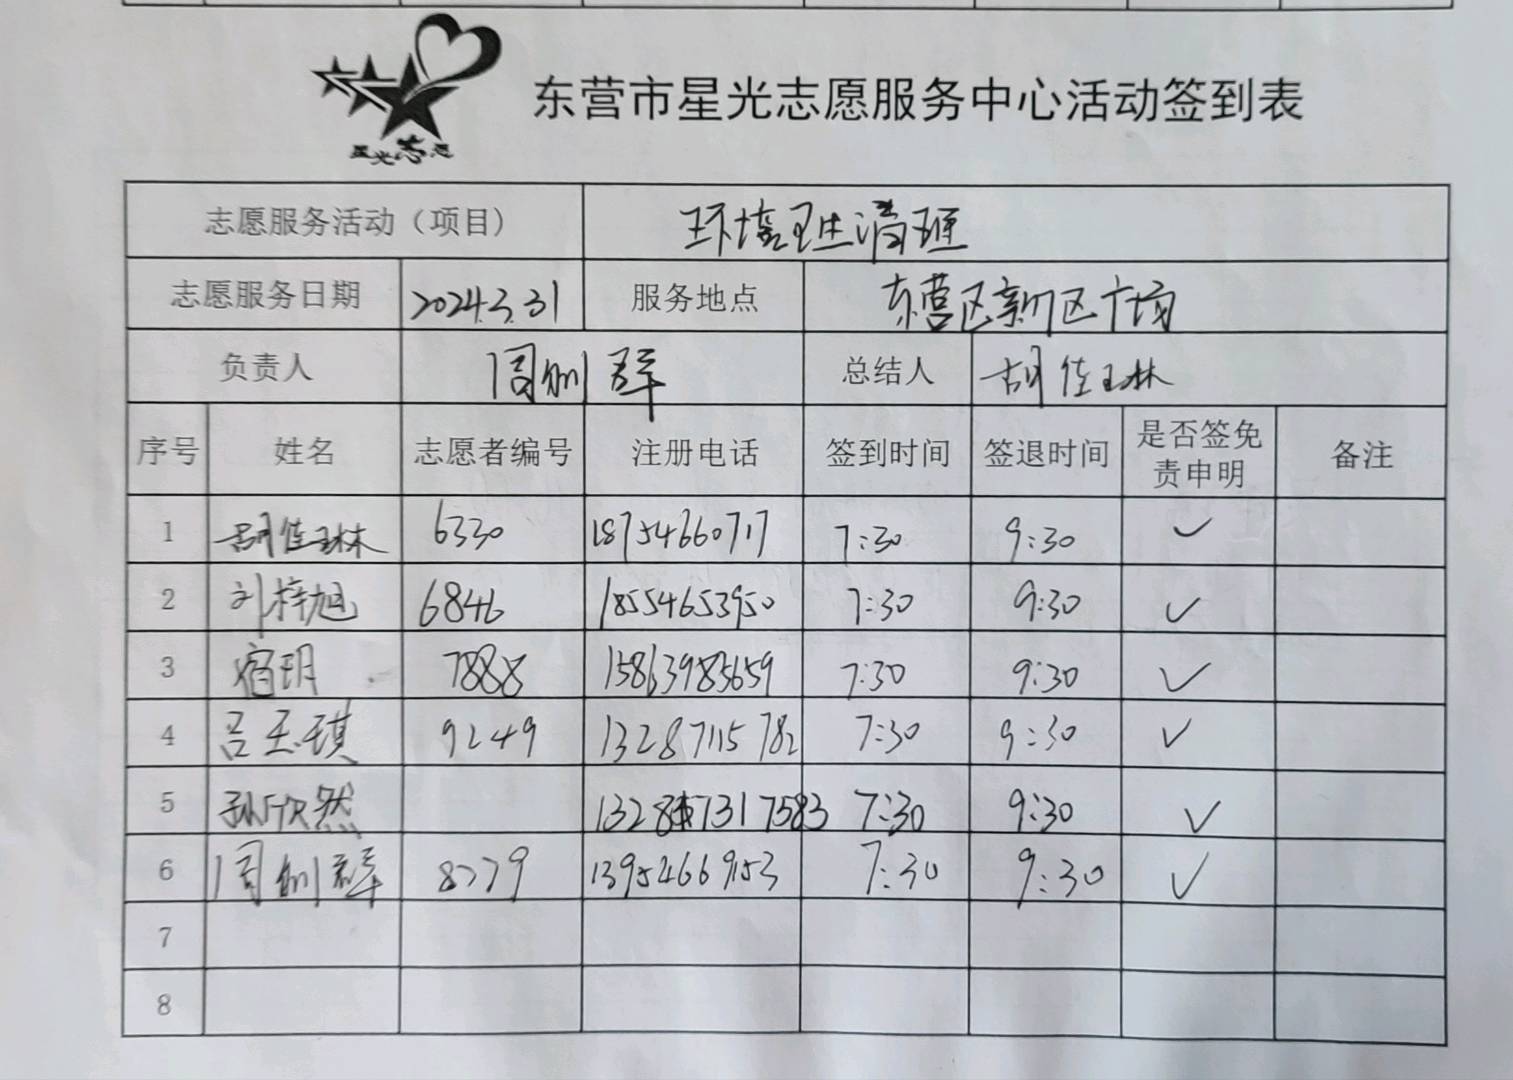 星光志愿
东营市星光志愿服务中心活动签到表
志愿服务活动（项目） 环境卫生清理
志愿服务日期 2024.3.31 服务地点 东营区新区广场
负责人 周 群 总结人 胡佳琳
序号 姓名 志愿者编号 注册电话 签到时间 签退时间 是否签免责申明 备注
1 胡佳琳 6330 18754660717 7:30 9:30 ✓
2 刘梓旭 6846 18554653950 7:30 9:30 ✓
3 宿玥 7888 15863983659 7:30 9:30 ✓
4 吕玉琪 9249 13287115782 7:30 9:30 ✓
5 孙欣然 7:30 9:30 ✓
6 周 群 8779 13954669153 7:30 9:30 ✓
7
8